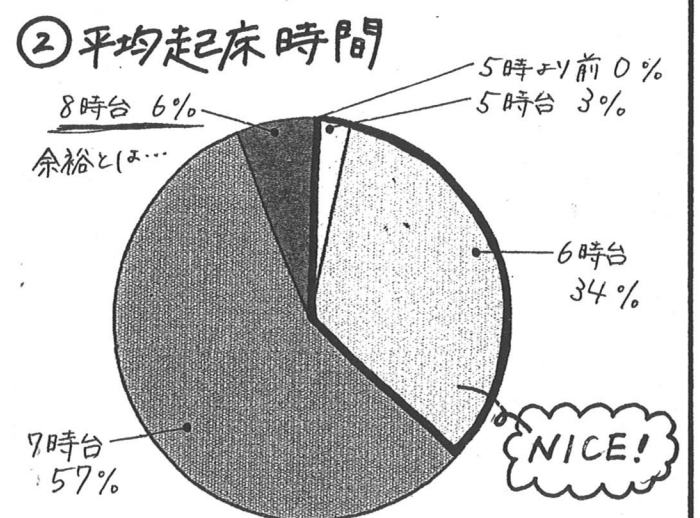 ② 平均起床時間
5時より前 0%
5時台 3%
8時台 6%
余裕とは…
6時台
34%
7時台
57%
NICE!